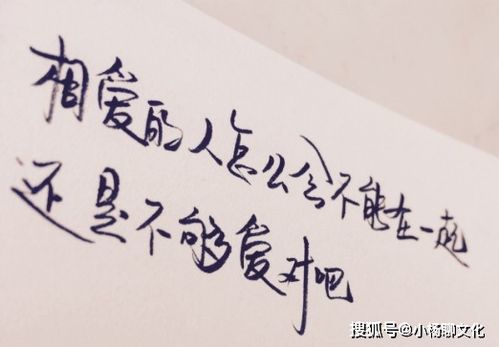 相爱的人怎么会不能在一起
还是不够爱对吧
搜狐号@小杨聊文化